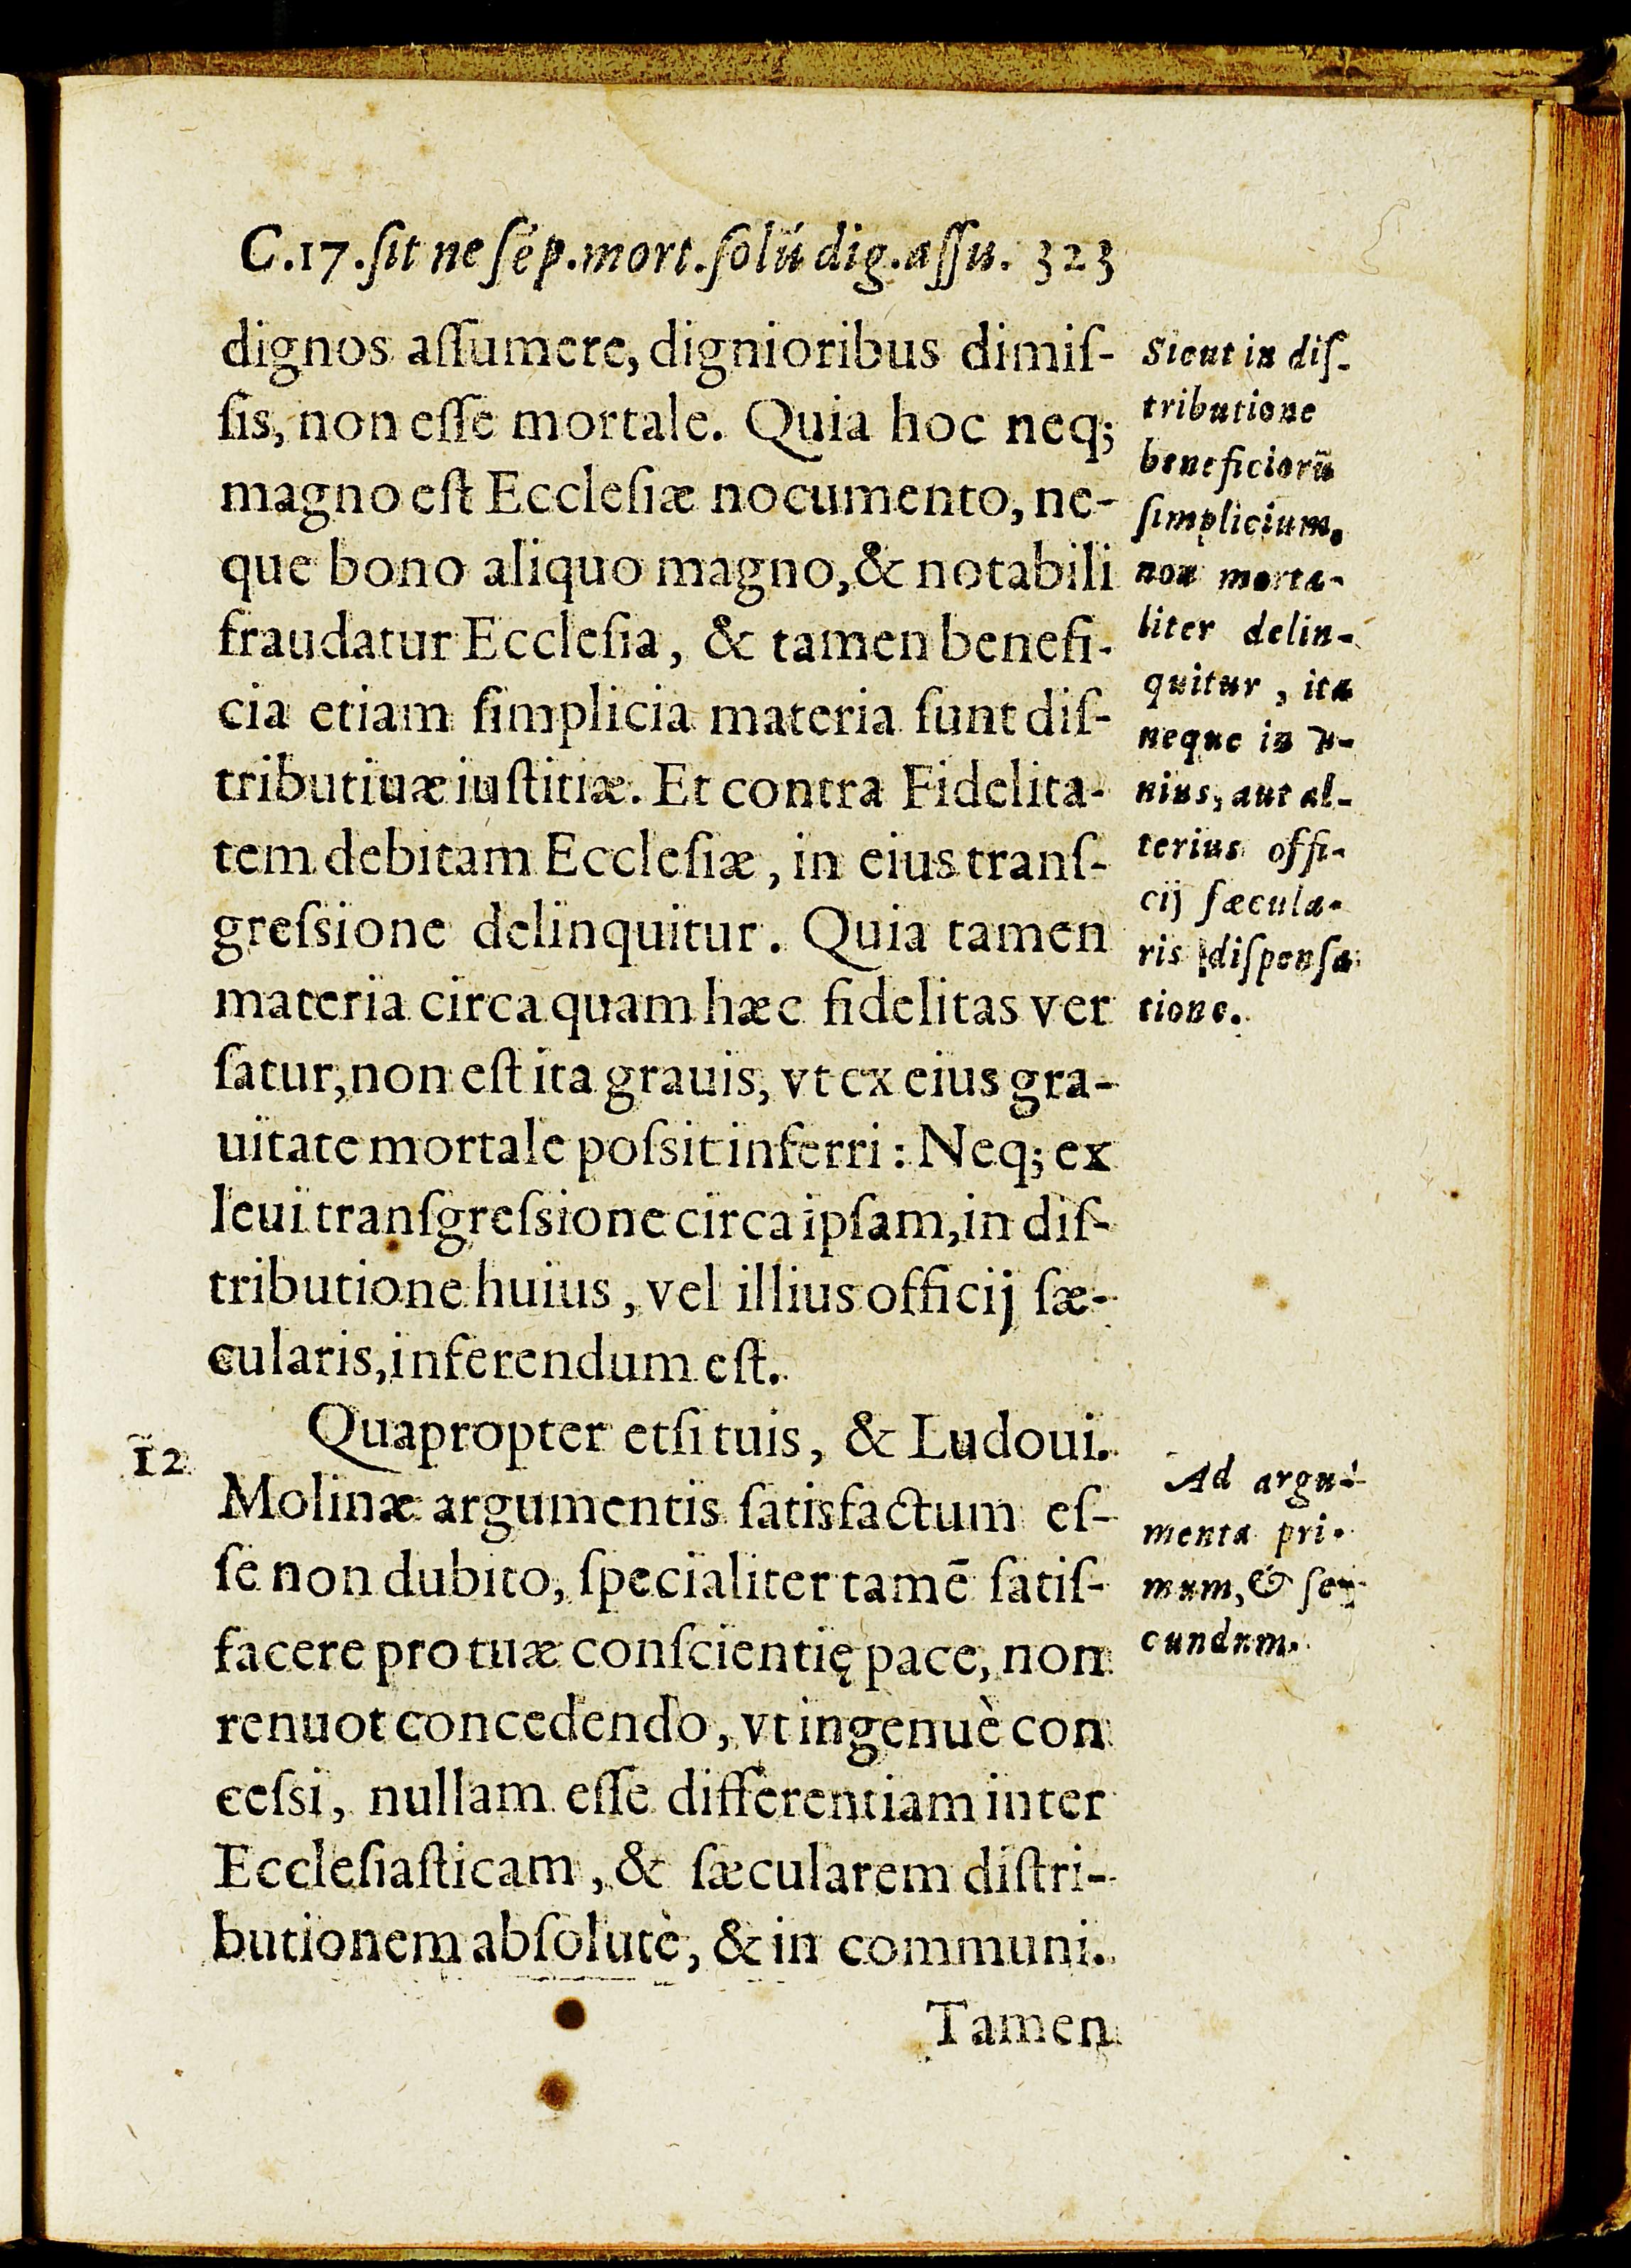 C.17.ſit ne ſép.mort.ſolũ dig.aſſu. 323
dignos aſſumere, dignioribus dimiſ-
ſis, non eſſe mortale. Quia hoc neq;
magno eſt Eccleſiæ nocumento, ne-
que bono aliquo magno, & notabili
fraudatur Eccleſia, & tamen benefi-
cia etiam ſimplicia materia ſunt diſ-
tributiuæ iuſtitiæ. Et contra Fidelita-
tem debitam Eccleſiæ, in eius tranſ-
greſsione delinquitur. Quia tamen
materia circa quam hæc fidelitas ver
ſatur, non eſt ita grauis, vt ex eius gra-
uitate mortale poſsit inferri: Neq; ex
leui tranſgreſsione circa ipſam, in diſ-
tributione huius, vel illius officij ſæ-
cularis, inferendum eſt.
Sicut in diſ-
tributione
beneficiorũ
ſimplicium,
non morta-
liter delin-
quitur, ita
neque in v-
nius, aut al-
terius offi-
cij ſæcula-
ris diſpenſa
tione.
12
Quapropter etſi tuis, & Ludoui.
Molinæ argumentis ſatisfactum eſ-
ſe non dubito, ſpecialiter tamē ſatiſ-
facere pro tuæ conſcientię pace, non
renuot concedendo, vt ingenuè con
ceſsi, nullam eſſe differentiam inter
Eccleſiaſticam, & ſæcularem diſtri-
butionem abſolutè, & in communi.
Ad argu-
menta pri-
mum, & ſe-
cundum.
Tamen